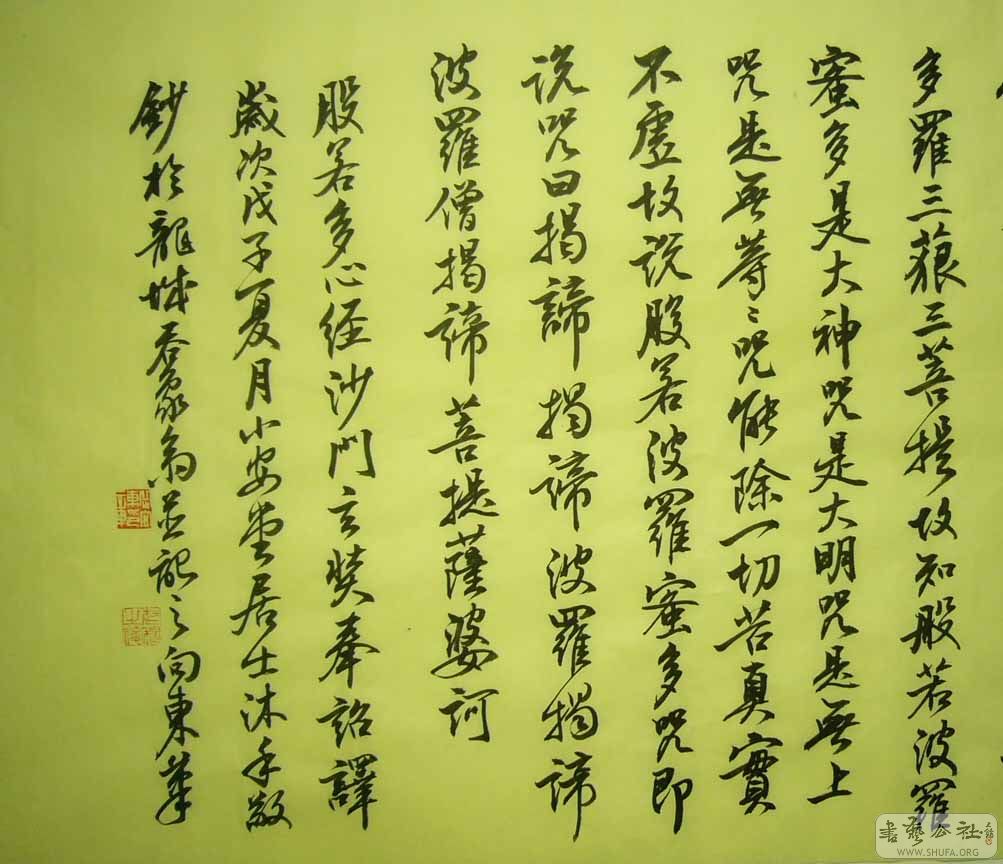 多羅三藐三菩提故知般若波羅
蜜多是大神咒是大明咒是無上
咒是無等々咒能除一切苦真實
不虛故說般若波羅蜜多咒即
說咒曰揭諦揭諦波羅揭諦
波羅僧揭諦菩提薩婆訶
般若多心経沙門玄奘奉詔譯
歲次戊子夏月小安堂居士沐手敬
鈔於龍城吞象翁並記之向東筆
書藝公社
WWW.SHUFA.ORG